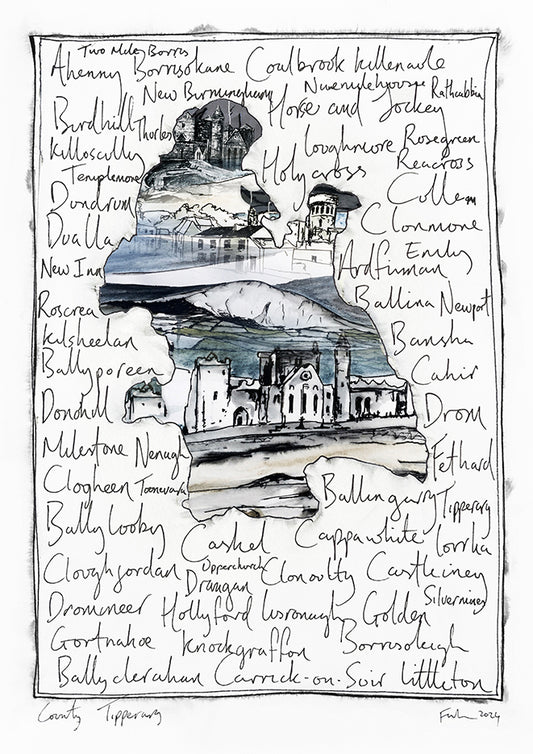 Two Mile Borris
Ahenny Borrisokane Coalbrook Killenaule
New Birmingham Ninemilehouse Rathcabbin
Birdhill Thurles Horse and Jockey
Killoscully Loughmore Rosegreen
Templemore Holycross Reacross
Dundrum Cullen
Dualla Clonmore
New Inn Ardfinnan Emly
Roscrea Ballina Newport
Kilsheelan Bansha
Ballyporeen Cahir
Donohill Drom
Milestone Nenagh Fethard
Clogheen Toomevara Ballingarry Tipperary
Ballylooby Cashel Cappawhite Lorrha
Cloughjordan Upperchurch Clonoulty Castleiney
Drangan
Dromineer Hollyford Lisronagh Golden Silvermines
Gortnahoe Knockgraffon Borrisoleigh
Ballyclerahan Carrick-on-Suir Littleton
County Tipperary 2024